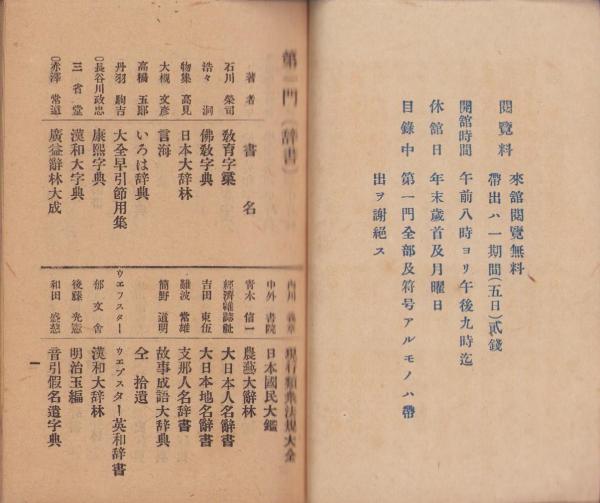 閲覽料 來舘閲覽無料
帶出ハ一期間(五日)貳錢
開舘時間 午前八時ヨリ午後九時迄
休舘日 年末歳首及月曜日
目錄中 第一門全部及符号アルモノハ帶
出ヲ謝絶ス
第一門(辞書)
著者 書名
石川 榮司 敎育字彙
浩々洞 佛敎字典
物集 高見 日本大辞林
大槻 文彦 言海
高橋 五郎 いろは辞典
丹羽 駒吉 大全早引節用集
(長谷川政忠 康熙字典
三省堂 漢和大字典
(赤澤 常道 廣益辭林大成
現行類聚法規大全
中外 書院 日本國民大鑑
青木 信一 農藝大辭林
經濟雜誌社 大日本人名辭書
吉田 東伍 大日本地名辭書
難波 常雄 支那人名辞書
簡野 道明 故事成語大辞典
仝 拾遺
ウエブスター ウエブスター英和辞書
郁文舎 漢和大辞林
後藤 光憲 明治玉編
和田 音引假名遣字典
一